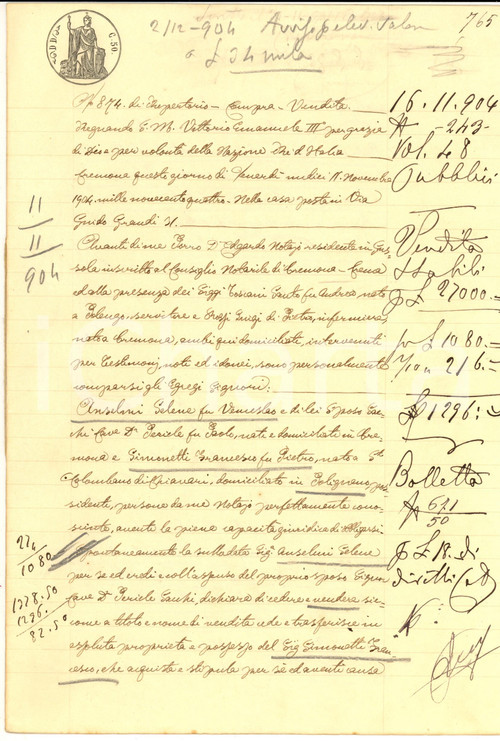 C. 50
2/12-904 Avviso
a £ 34 mila
765
Nº 874. di Repertorio - Compra - Vendita.
Regnando S. M. Vittorio Emanuele III per grazia
di Dio e per volontà della Nazione Re d'Italia
Cremona questo giorno di Venerdì undici 11. Novembre
1904. mille novecentoquattro. Nella casa posta in Via
Guido Grandi
Avanti di me Porro Dr Edgardo Notajo residente in
sola inscritto al Consiglio Notarile di Cremona - Crema
ed alla presenza dei Sigg. Toscani Santo fu Andrea, nato
a servitore e Grossi Luigi di Pietro, infermiere
nato a Cremona, ambi qui domiciliati, intervenuti
per testimonj, noti ed idonei, sono personalmente
comparsi gli Egregi Signori:
Anselmi Selene fu Venceslao e di lei sposo
Cav. Dr Pericle fu Paolo, nati e domiciliati in Cre-
mona e Simonetti Francesco fu Pietro, nato a S.
Colombano di Chiavari, domiciliato in Polignano,
sidente, persone da me Notajo perfettamente cono-
sciute, aventi la piena capacità giuridica di obbligarsi
Spontaneamente la sullodata Sig.a Anselmi Selene
per sé ed eredi e coll'assenso del proprio sposo Signor
Cav. Dr Pericle dichiara di cedere e vendere sic-
come a titolo e nome di vendita cede e trasferisce in
assoluta proprietà e possesso del Sig. Simonetti Fran-
cesco, che acquista e stipula per sé ed aventi causa
11
11
904
216
1080
1378.50
1296.
82.50
16.11.904
Nº - 243 -
Vol. 48
Pubblici
Vendita
Stabili
p £ 27000.=
p £ 1080.=
216.=
£ 1296.=
Bolletta
Nº 671
50
p £ 18. di
diritti